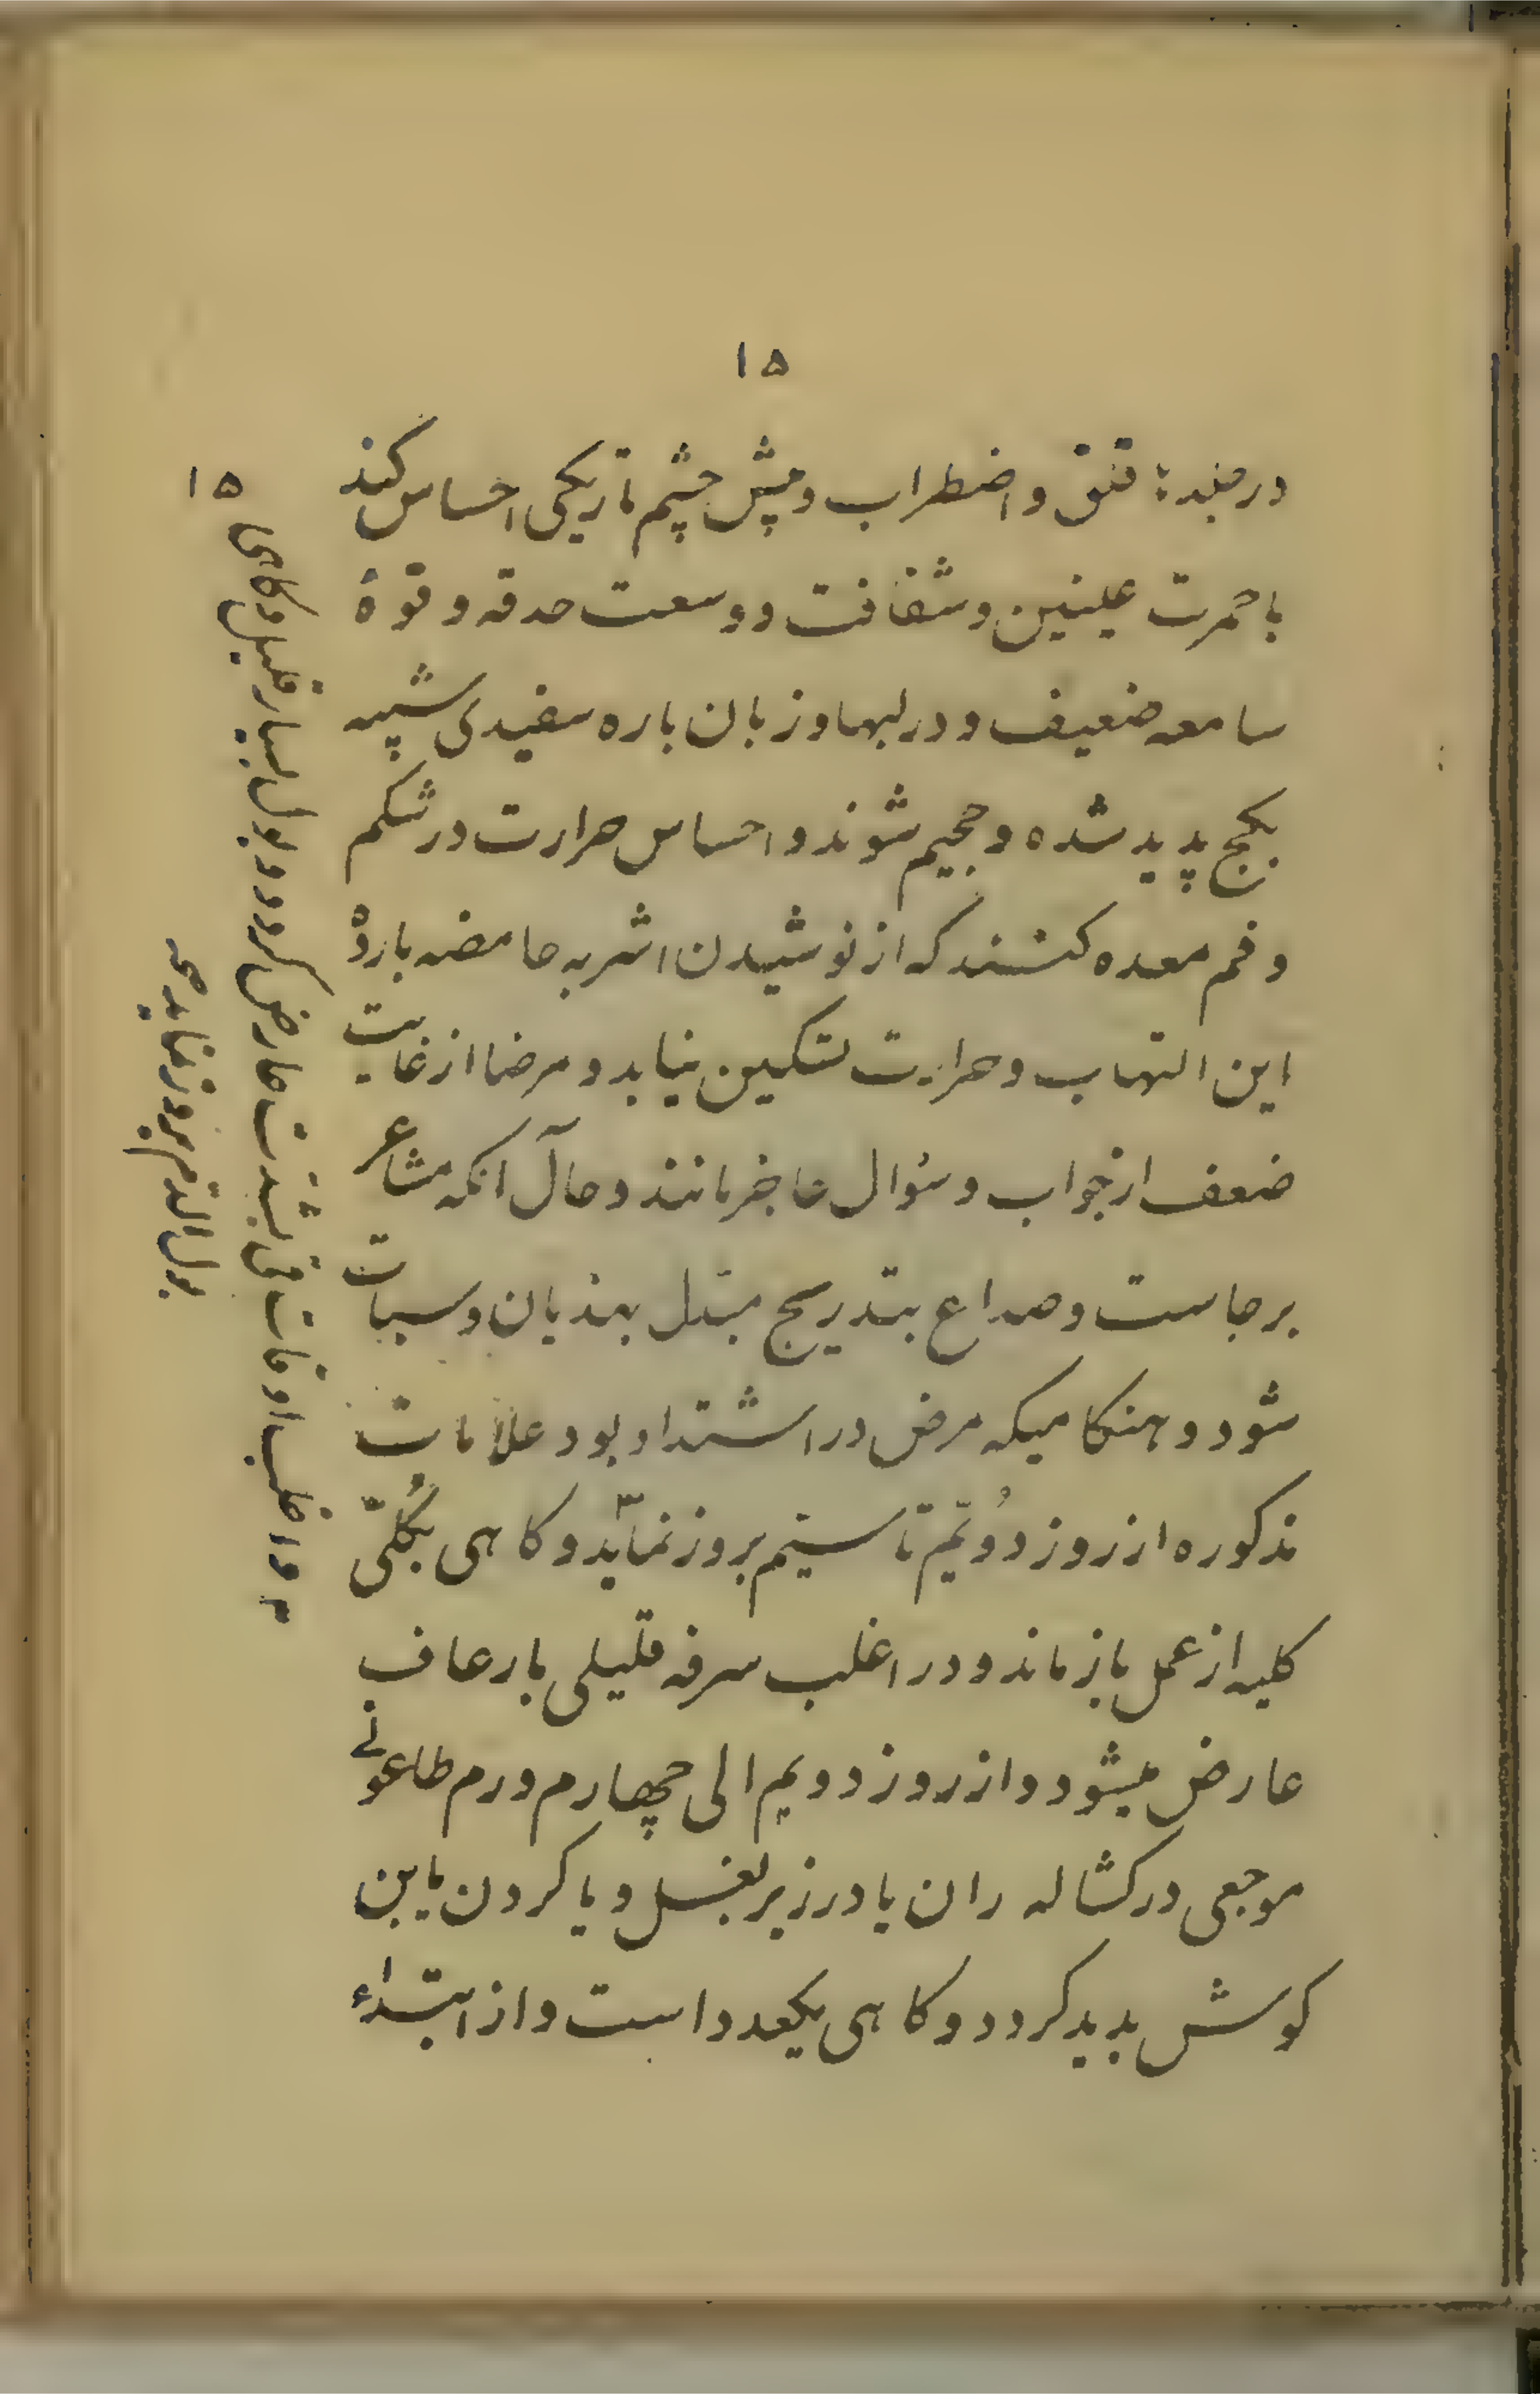 ۱۵
در معده قلق و اضطراب و پیش چشم تاریکی احساس کند
با حمرت عینین و شفافت و وسعت حدقه و قوة
سامعه ضعیف و در لبها و زبان باره سفیدی شبیه
بکج پدید شده و حجیم شوند و احساس حرارت در شکم
و فم معده کنند که از نوشیدن اشربه حامضه باردهٔ
این التهاب و حرارت تسکین نیابد و مرضا از غایت
ضعف از جواب و سئوال عاجز مانند و حال آنکه مشاعر
برجاست و صداع بتدریج مبدل بهذیان و سبات
شود و هنکامیکه مرض در اشتداد بود علامات
مذکوره از روز دُوّیّم تا سیّم بروز نماید و کاهی بکُلّی
کلیه از عمل باز ماند و در اغلب سرفه قلیلی با رعاف
عارض میشود و از روز دویم الی چهارم ورم طاعونے
موجعی در کشاله ران یا در زیر بغل و یا کردن یا بن
کوش پدید کردد و کاهی یکعدد است و از ابتداء
۱۵
۳ و اغلب اوقات قی بشدّت عارض کردد و بول بسیار قلیل و کاهی
بول الدم بروز نماید صح